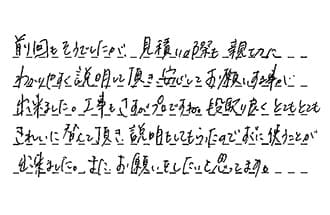 前回もそうでしたが、見積りの際も親切に
わかりやすく説明して頂き安心してお願いする事が
出来ました。工事もさすがプロですね。段取り良くとてもとても
きれいに替えて頂き、説明もしてもらったのですぐに使うことが
出来ました。また、お願いをしたいと思ってます。